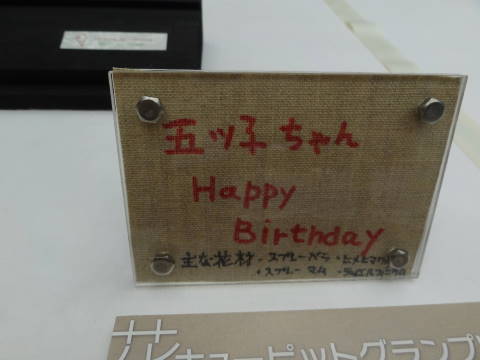 五ツ子ちゃん
Happy
Birthday
主な花材・スプレーバラ・ヒメヒマワリ
・スプレーマム
花キューピットグランプリ